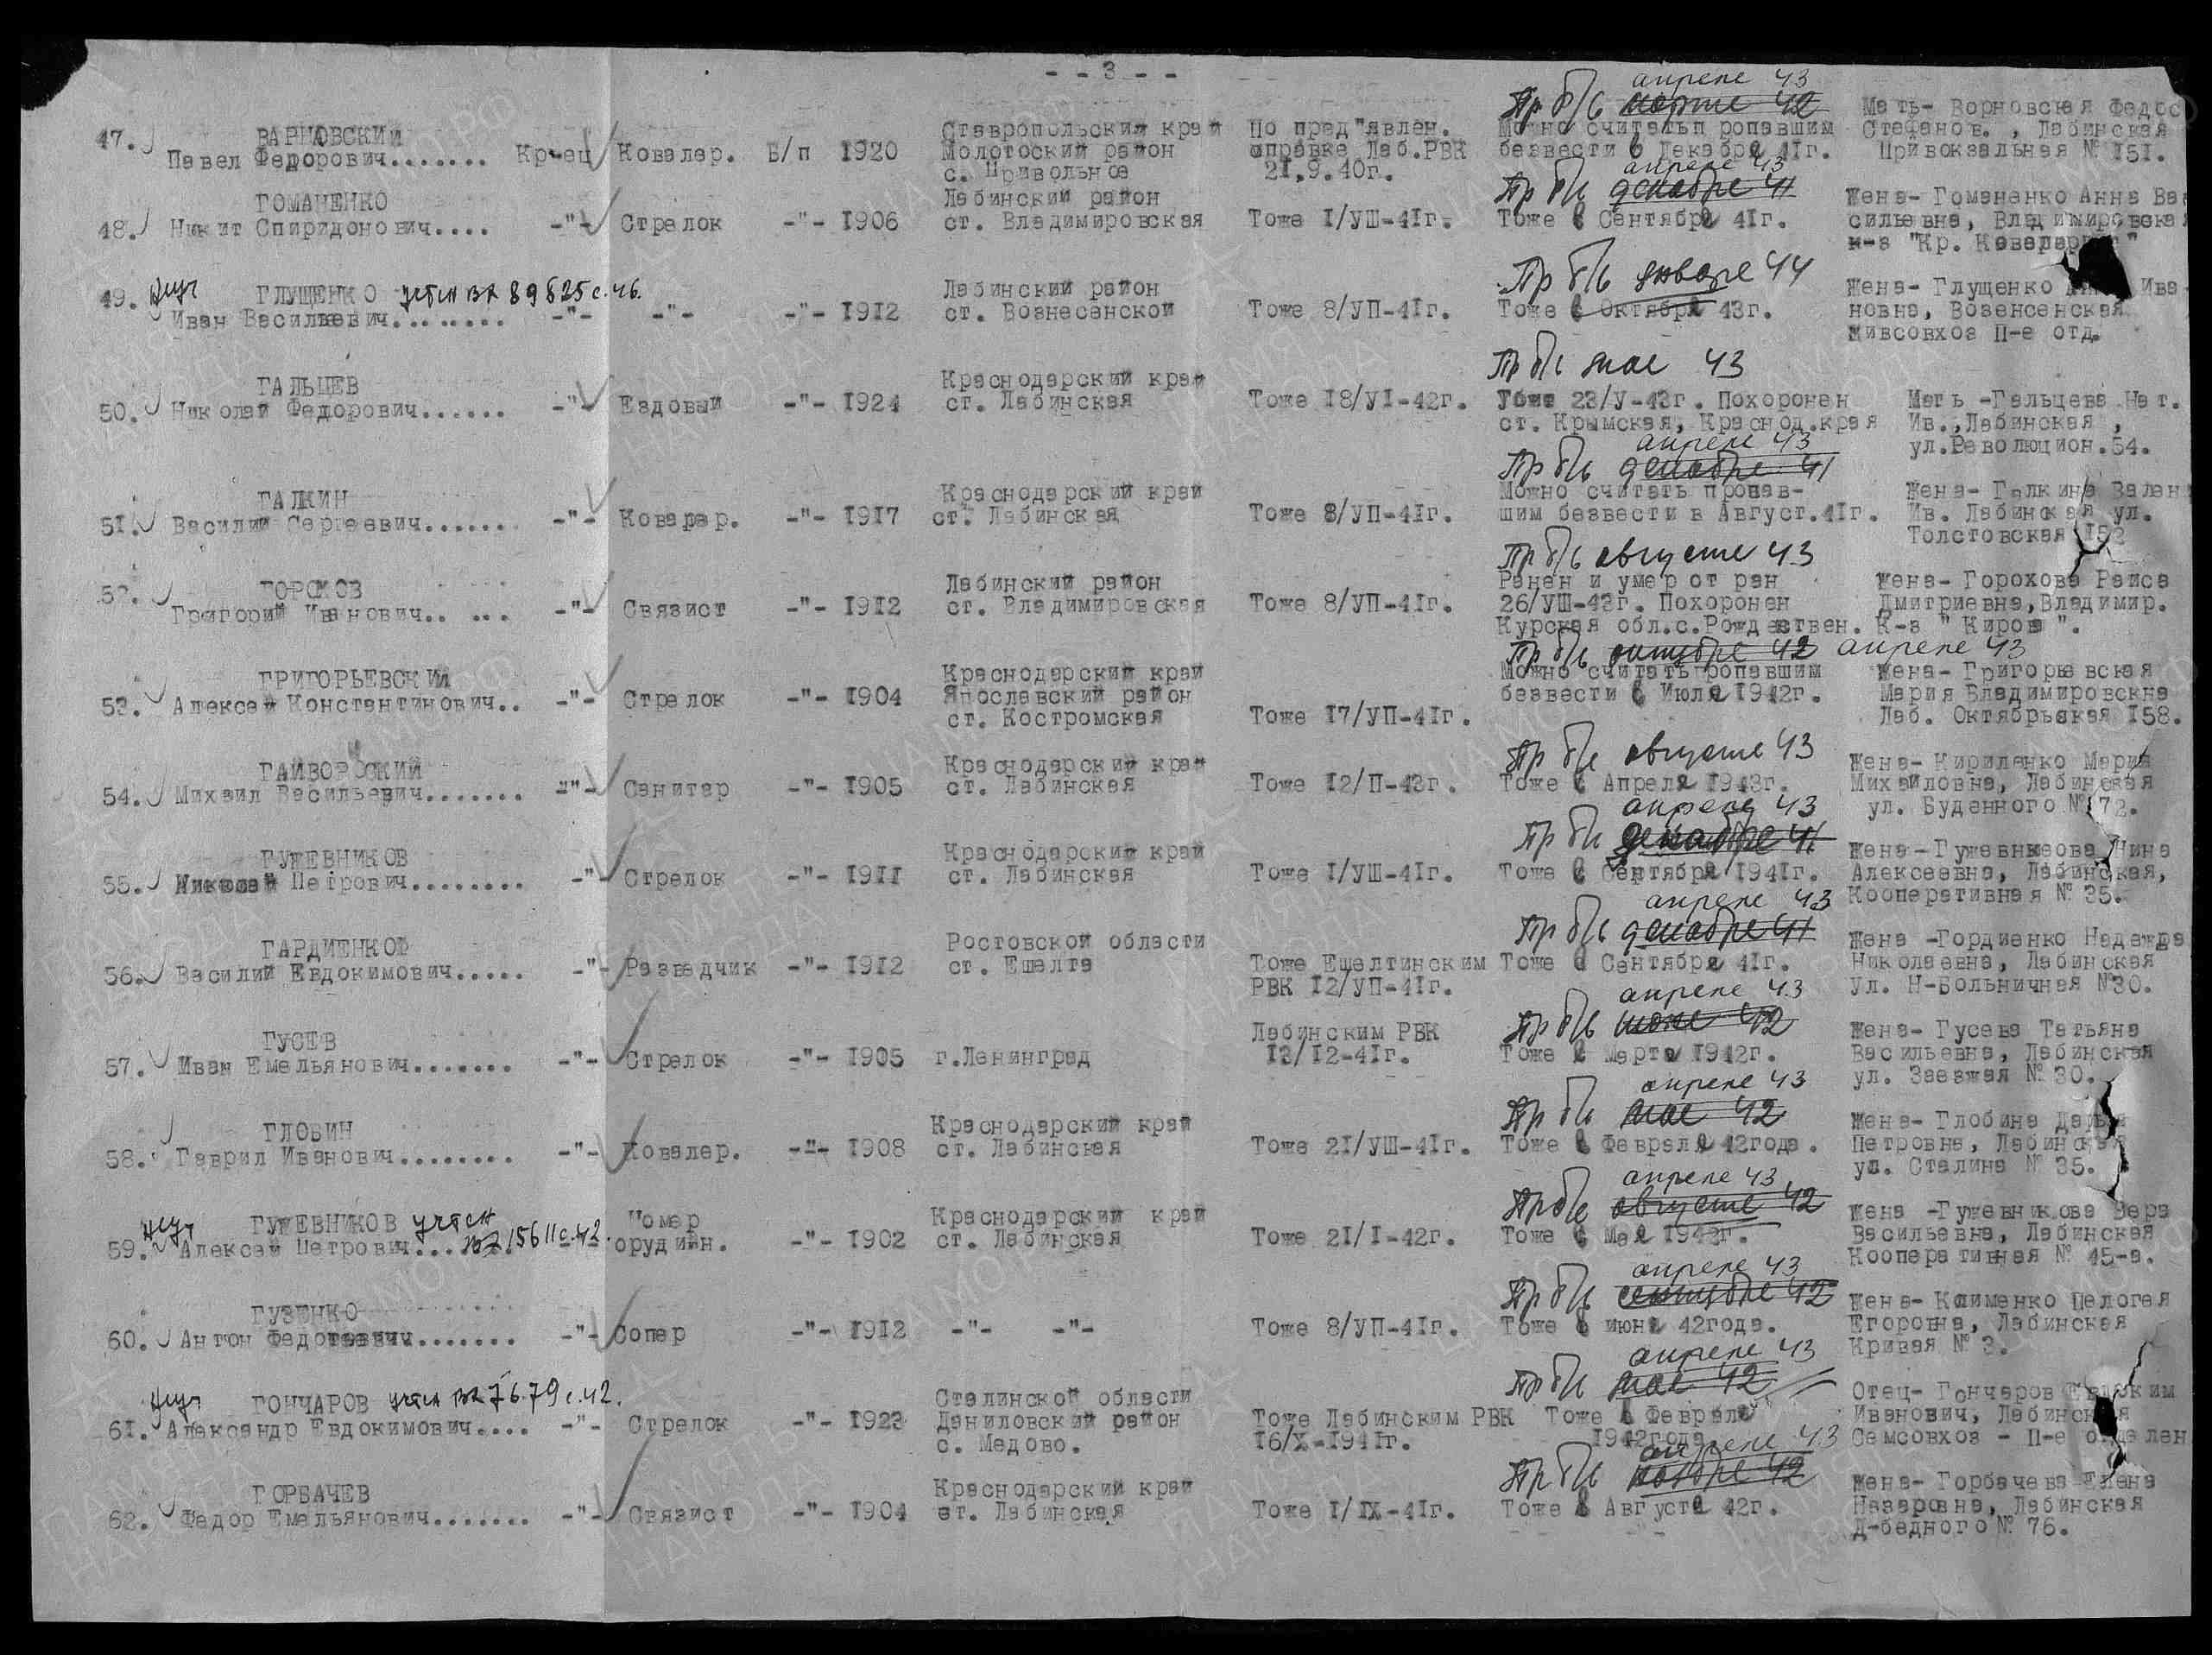 - - 3 - -
апреле 43
Пр б/в марте 42
47. ВАРНОВСКИЙ
Павел Федорович....... Кр-ец Ковалер. Б/п 1920
Ставропольский край
Молотоский район
с. Привольное
По пред"явлен.
справке Лаб.РВК
21.9.40г.
Можно считатьп ропавшим
безвести в Декабре 41г.
Мать- Ворновская Федос
Стефанов. , Лабинская
Привокзальная № 151.
апреле 43
Пр б/в декабре 41
48. ГОМАНЕНКО
Никит Спиридонович.... -"- Стрелок -"- 1906
Лабинский район
ст. Владимировская
Тоже 1/УШ-41г.
Тоже в Сентябре 41г.
Жена- Гоманенко Анна Ва
сильевна, Владимировска
к-з "Кр. Кавалерист"
Пр б/в январе 44
49. ГЛУЩЕНКО учтен вх 89825с.46.
Иван Васильевич........ -"- -"- -"- 1912
Лабинский район
ст. Вознесенской
Тоже 8/УП-41г.
Тоже в Октябре 43г.
Жена- Глущенко Ива
новна, Возенсенская
живсовхоз П-е отд.
Пр б/в мае 43
50. ГАЛЬЦЕВ
Николай Федорович...... -"- Ездовый -"- 1924
Краснодарский край
ст. Лабинская
Тоже 18/У1-42г.
Убит 23/У-43г. Похоронен
ст. Крымская, Краснод.края
Мать -Гальцева Нат.
Ив.,Лабинская ,
ул.Революцион.54.
апреле 43
Пр б/в декабре 41
51. ГАЛКИН
Василий Сергеевич....... -"- Коварер. -"- 1917
Краснодарский край
ст. Лабинская
Тоже 8/УП-41г.
Можно считать пропав-
шим безвести в Август.41г.
Жена- Галкина Вален
Ив. Лабинская ул.
Толстовская 152
Пр б/в августе 43
52. ГОРОХОВ
Григорий Иванович.. ... -"- Связист -"- 1912
Лабинский район
ст. Владимировская
Тоже 8/УП-41г.
Ранен и умер от ран
26/УШ-43г. Похоронен
Курская обл.с.Рождествен.
Жена- Горохова Раиса
Дмитриевна,Владимир.
К-з " Кирова ".
Пр б/в октябре 42 апреле 43
53. ГРИГОРЬЕВСКИЙ
Алексей Константинович.. -"- Стрелок -"- 1904
Краснодарский край
Япославский район
ст. Костромская
Тоже 17/УП-41г.
Можно считатьпропавшим
безвести в Июле 1942г.
Жена- Григорьевская
Мария Владимировскна
Лаб. Октябрьская 158.
Пр б/в августе 43
54. ГАЙВОРОСКИЙ
Михаил Васильевич....... -"- Санитар -"- 1905
Краснодарский край
ст. Лабинская
Тоже 12/П-43г.
Тоже в Апреле 1943г.
Жена- Кириленко Мария
Михайловна, Лабинская
ул. Буденного № 72.
апреле 43
Пр б/в декабре 41
55. ГУЖЕВНИКОВ
Николай Петрович........ -"- Стрелок -"- 1911
Краснодарский край
ст. Лабинская
Тоже 1/УШ-41г.
Тоже в Сентябре 1941г.
Жена- Гужевникова Нина
Алексеевна, Лабинская,
Кооперативная № 35.
апреле 43
Пр б/в декабре 41
56. ГАРДИЕНКОФ
Василий Евдокимович..... -"- Разведчик -"- 1912
Ростовской области
ст. Ешелта
Тоже Ешелтинским
РВК 12/УП-41г.
Тоже в Сентябре 41г.
Жена -Гордиенко Надежда
Николаевна, Лабинская
Ул. Н-Больничная №30.
апреле 43
Пр б/в июне 42
57. ГУСЕВ
Иван Емельянович....... -"- Стрелок -"- 1905 г.Ленинград
Лабинским РВК
13/12-41г.
Тоже в Марте 1942г.
Жена- Гусева Татьяна
Васильевна, Лабинская
ул. Заезжая № 30.
апреле 43
Пр б/в мае 42
58. ГЛОБИН
Гаврил Иванович........ -"- Ковалер. -"- 1908
Краснодарский край
ст. Лабинская
Тоже 21/УШ-41г.
Тоже в Феврале 42года.
Жена- Глобина Дарья
Петровна, Лабинская
ул. Сталина № 35.
апреле 43
Пр б/в августе 42
59. ГУЖЕВНИКОВ учтен
Алексей Петрович вх 15611с.42.
Номер
орудийн. -"- 1902
Краснодарский край
ст. Лабинская
Тоже 21/1-42г.
Тоже в Мае 1942г.
Жена -Гужевникова Вера
Васильевна, Лабинская
Кооперативная № 45-а.
апреле 43
Пр б/в сентябре 42
60. ГУЗЕНКО
Антон Федотеевич....... -"- Сопер -"- 1912 -"- -"-
Тоже 8/УП-41г.
Тоже в июне 42года.
Жена- Клименко Пелогея
Егоровна, Лабинская
Кривая № 3.
апреле 43
Пр б/в мае 42
61. ГОНЧАРОВ учтен вх 7679с.42.
Александр Евдокимович.... -"- Стрелок -"- 1923
Сталинской области
Даниловский район
с. Медово.
Тоже Лабинским РВК
16/Х-1941г.
Тоже в Феврале
1942года
Отец- Гончаров Евдоким
Иванович, Лабинская
Семсовхоз - П-е отделен
апреле 43
Пр б/в ноябре 42
62. ГОРБАЧЕВ
Федор Емельянович....... -"- Связист -"- 1904
Краснодарский край
ст. Лабинская
Тоже 1/IХ-41г.
Тоже в Августе 42г.
Жена- Горбачева Елена
Назаровна, Лабинская
Д-бедного № 76.